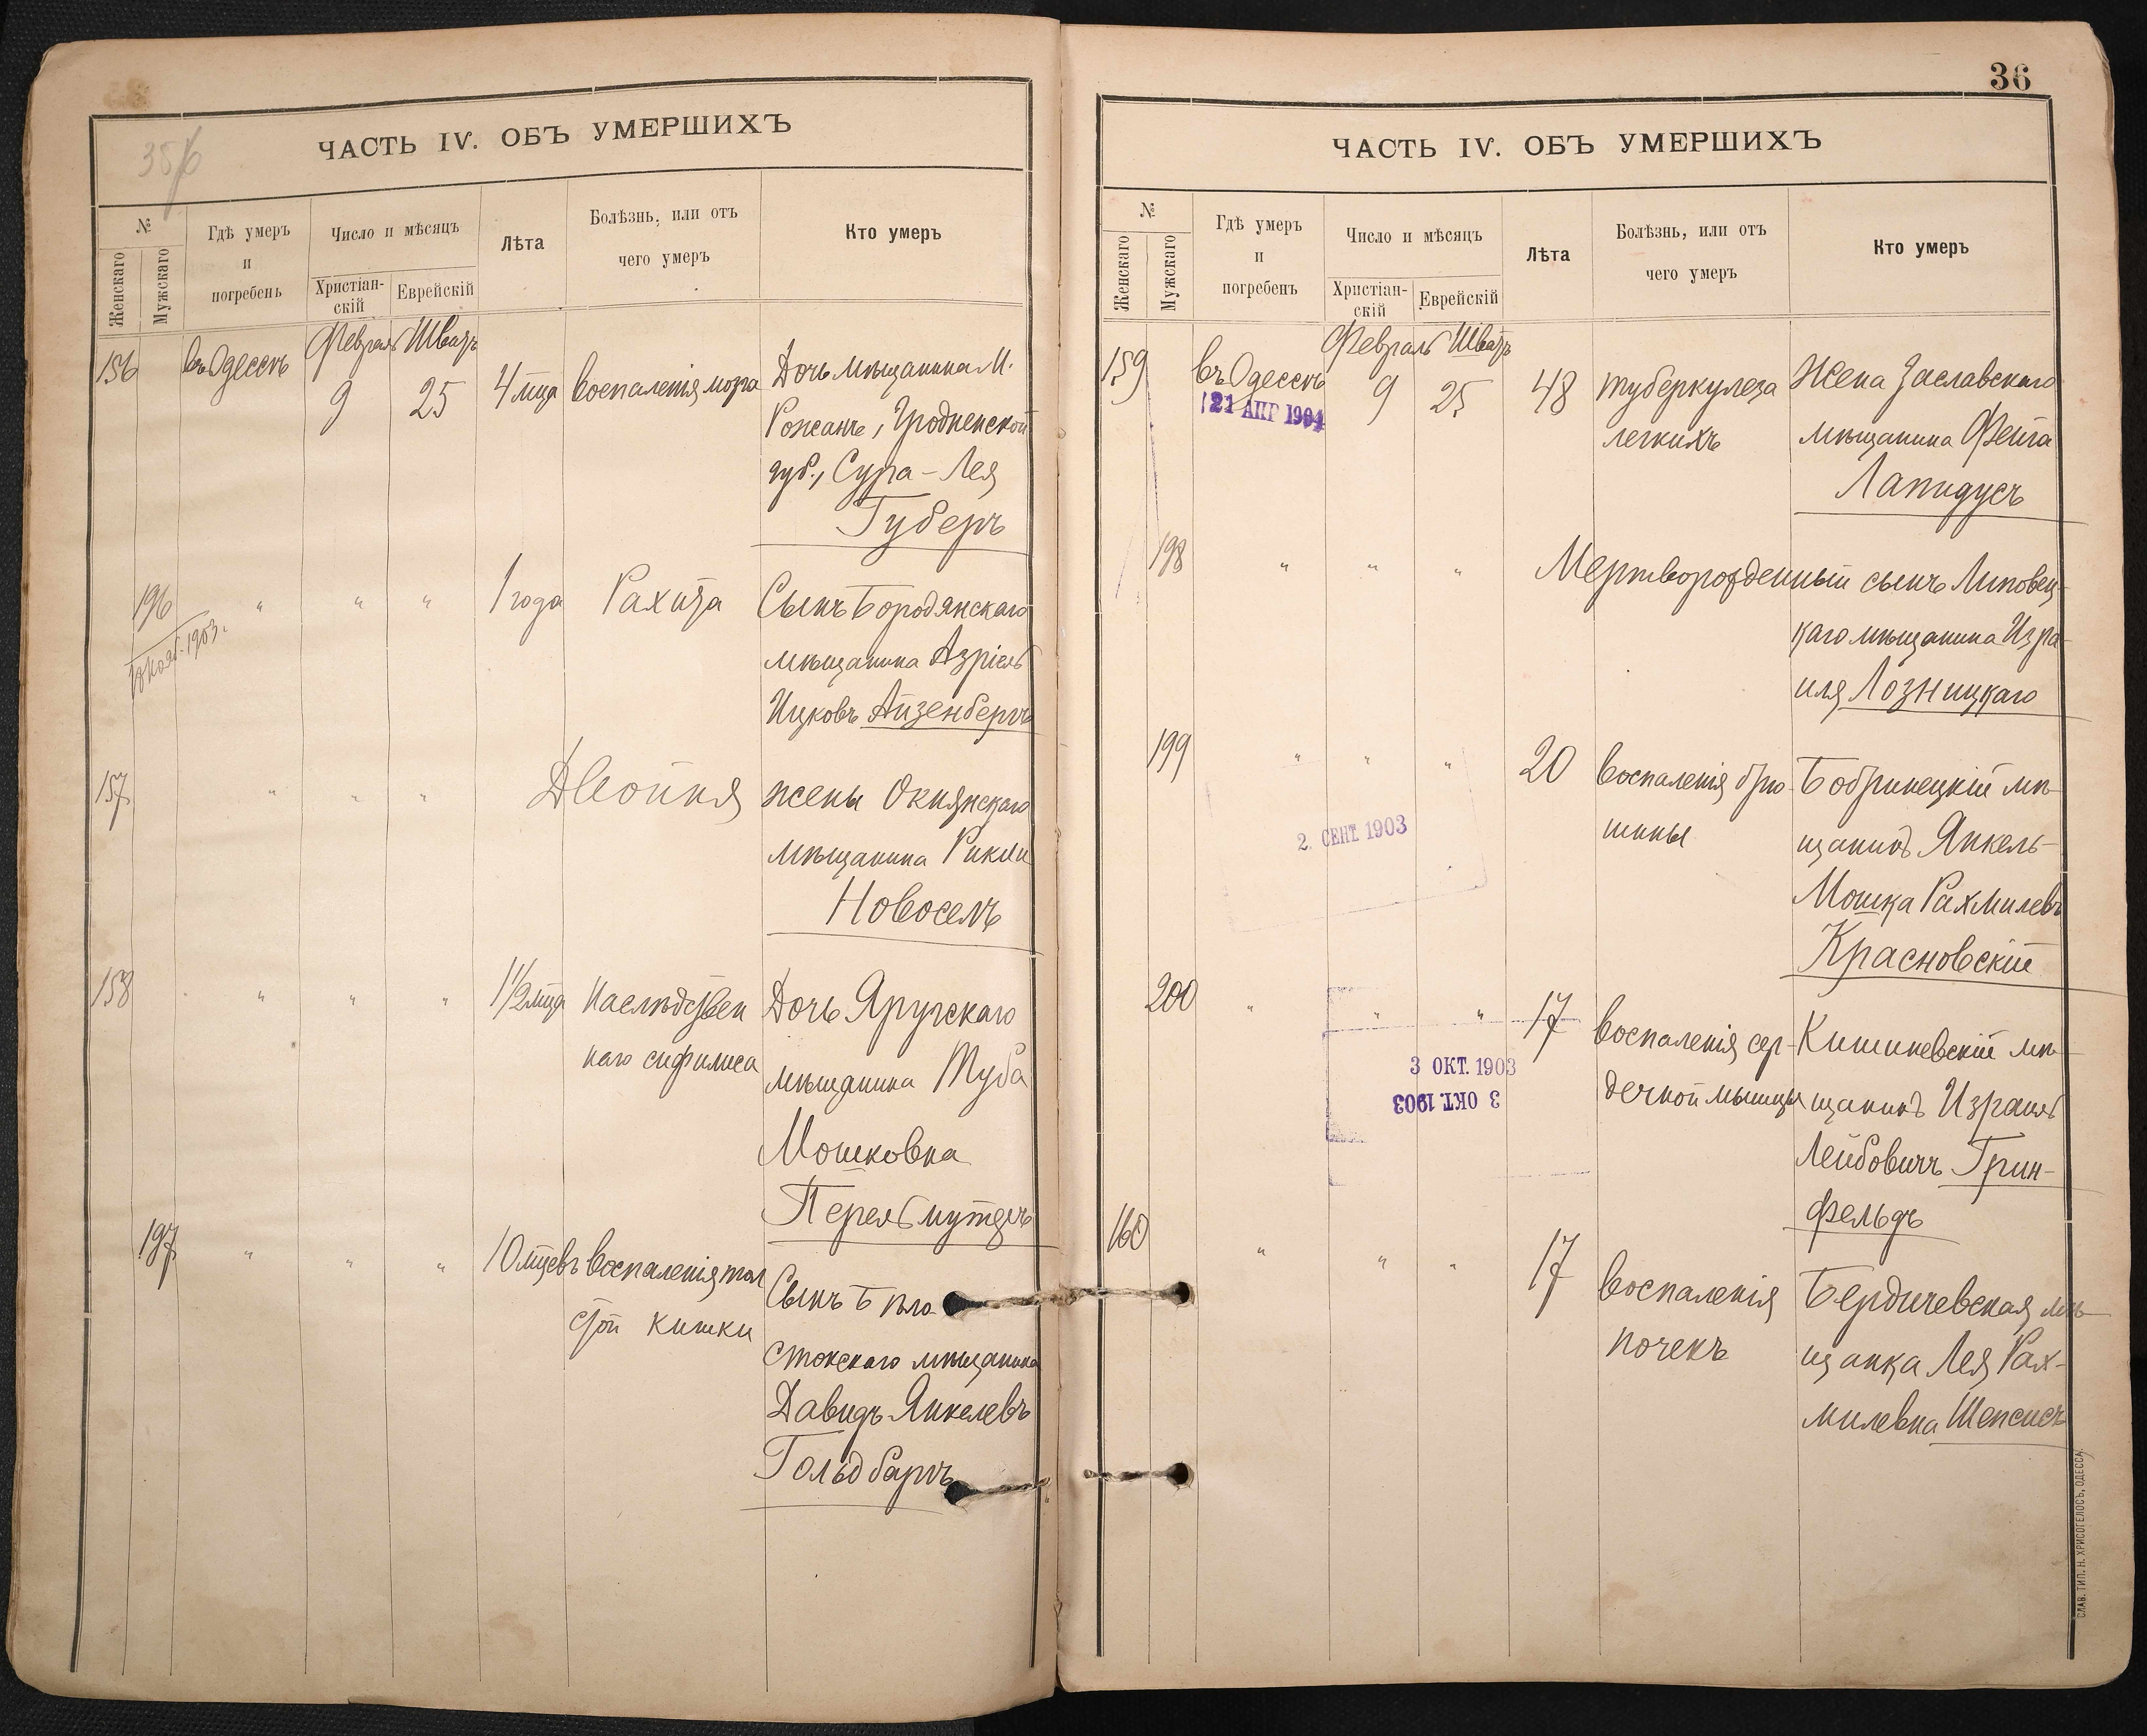 ЧАСТЬ IV. ОБЪ УМЕРШИХЪ
№
Женскаго
Мужскаго
Гдѣ умеръ
и
погребенъ
Число и мѣсяцъ
Христіан-
скій
Еврейскій
Лѣта
Болѣзнь, или отъ
чего умеръ
Кто умеръ
Февраль Шватъ
156 въ Одессѣ 9 25 4 мца воспаленія мозга Дочь мѣщанина М.
Рожанъ, Гродненской
губ., Сура-Лея
Губеръ
196 " " " 1 года Рахита Сынъ Бородянскаго
1903.
мѣщанина Азріель
Ицковъ Айзенбергъ
157 " " " Двойня жены Окнянскаго
мѣщанина Рикли
Новоселъ
158 " " " 1 1/2 мца Наслѣдствен
наго сифилиса
Дочь Яругскаго
мѣщанина Туба
Мошковна
Перельмутеръ
197 " " " 10 мцевъ воспаленія тол
стой кишки
Сынъ Бѣло
стокскаго мѣщанина
Давидъ Янкелевъ
Гольдбаргъ
36
ЧАСТЬ IV. ОБЪ УМЕРШИХЪ
№
Женскаго
Мужскаго
Гдѣ умеръ
и
погребенъ
Число и мѣсяцъ
Христіан-
скій
Еврейскій
Лѣта
Болѣзнь, или отъ
чего умеръ
Кто умеръ
Февраль Шватъ
159 въ Одессѣ 9 25 48 туберкулеза
легкихъ
21 АПР 1904
Жена Заславскаго
мѣщанина Фейга
Лапидусъ
198 " " " Мертворожденный сынъ Липовец-
каго мѣщанина Изра-
иля Лозницкаго
199 " " " 20 воспаленія брю-
шины
2. СЕНТ. 1903
Бобринецкій мѣ-
щанинъ Янкель-
Мошка Рахмилевъ
Красновскій
200 " " " 17 воспаленія сер-
дечной мышцы
3 ОКТ. 1903
3 ОКТ. 1903
Кишиневскій мѣ-
щанинъ Израиль
Лейбовичъ Грин-
фельдъ
160 " " " 17 воспаленія
почекъ
Бердичевская мѣ-
щанка Лея Рах-
милевна Шепсисъ
СЛАВ. ТИП. Н. ХРИСОГЕЛОСЪ, ОДЕССА